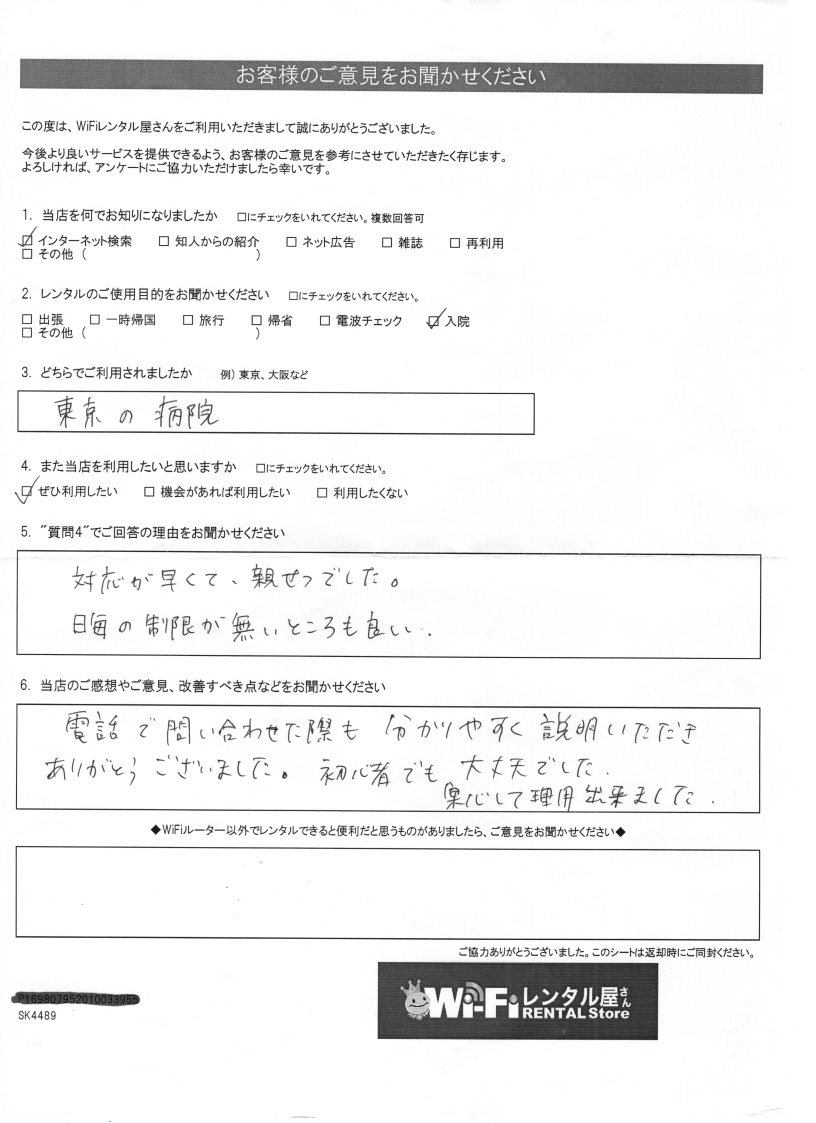 お客様のご意見をお聞かせください
この度は、WiFiレンタル屋さんをご利用いただきまして誠にありがとうございました。
今後より良いサービスを提供できるよう、お客様のご意見を参考にさせていただきたく存じます。
よろしければ、アンケートにご協力いただけましたら幸いです。
1. 当店を何でお知りになりましたか □にチェックをいれてください。複数回答可
☑ インターネット検索 □ 知人からの紹介 □ ネット広告 □ 雑誌 □ 再利用
□ その他 ( )
2. レンタルのご使用目的をお聞かせください □にチェックをいれてください。
□ 出張 □ 一時帰国 □ 旅行 □ 帰省 □ 電波チェック ☑ 入院
□ その他 ( )
3. どちらでご利用されましたか 例) 東京、大阪など
東京の病院
4. また当店を利用したいと思いますか □にチェックをいれてください。
☑ ぜひ利用したい □ 機会があれば利用したい □ 利用したくない
5. "質問4"でご回答の理由をお聞かせください
対応が早くて、親せつでした。
日毎の制限が無いところも良い.
6. 当店のご感想やご意見、改善すべき点などをお聞かせください
電話で問い合わせた際も分かりやすく説明いただき
ありがとうございました。初心者でも大丈夫でした.
して理用出来ました.
◆WiFiルーター以外でレンタルできると便利だと思うものがありましたら、ご意見をお聞かせください◆
ご協力ありがとうございました。このシートは返却時にご同封ください。
P169807952010033955
SK4489
Wi-Fiレンタル屋さん
RENTAL Store